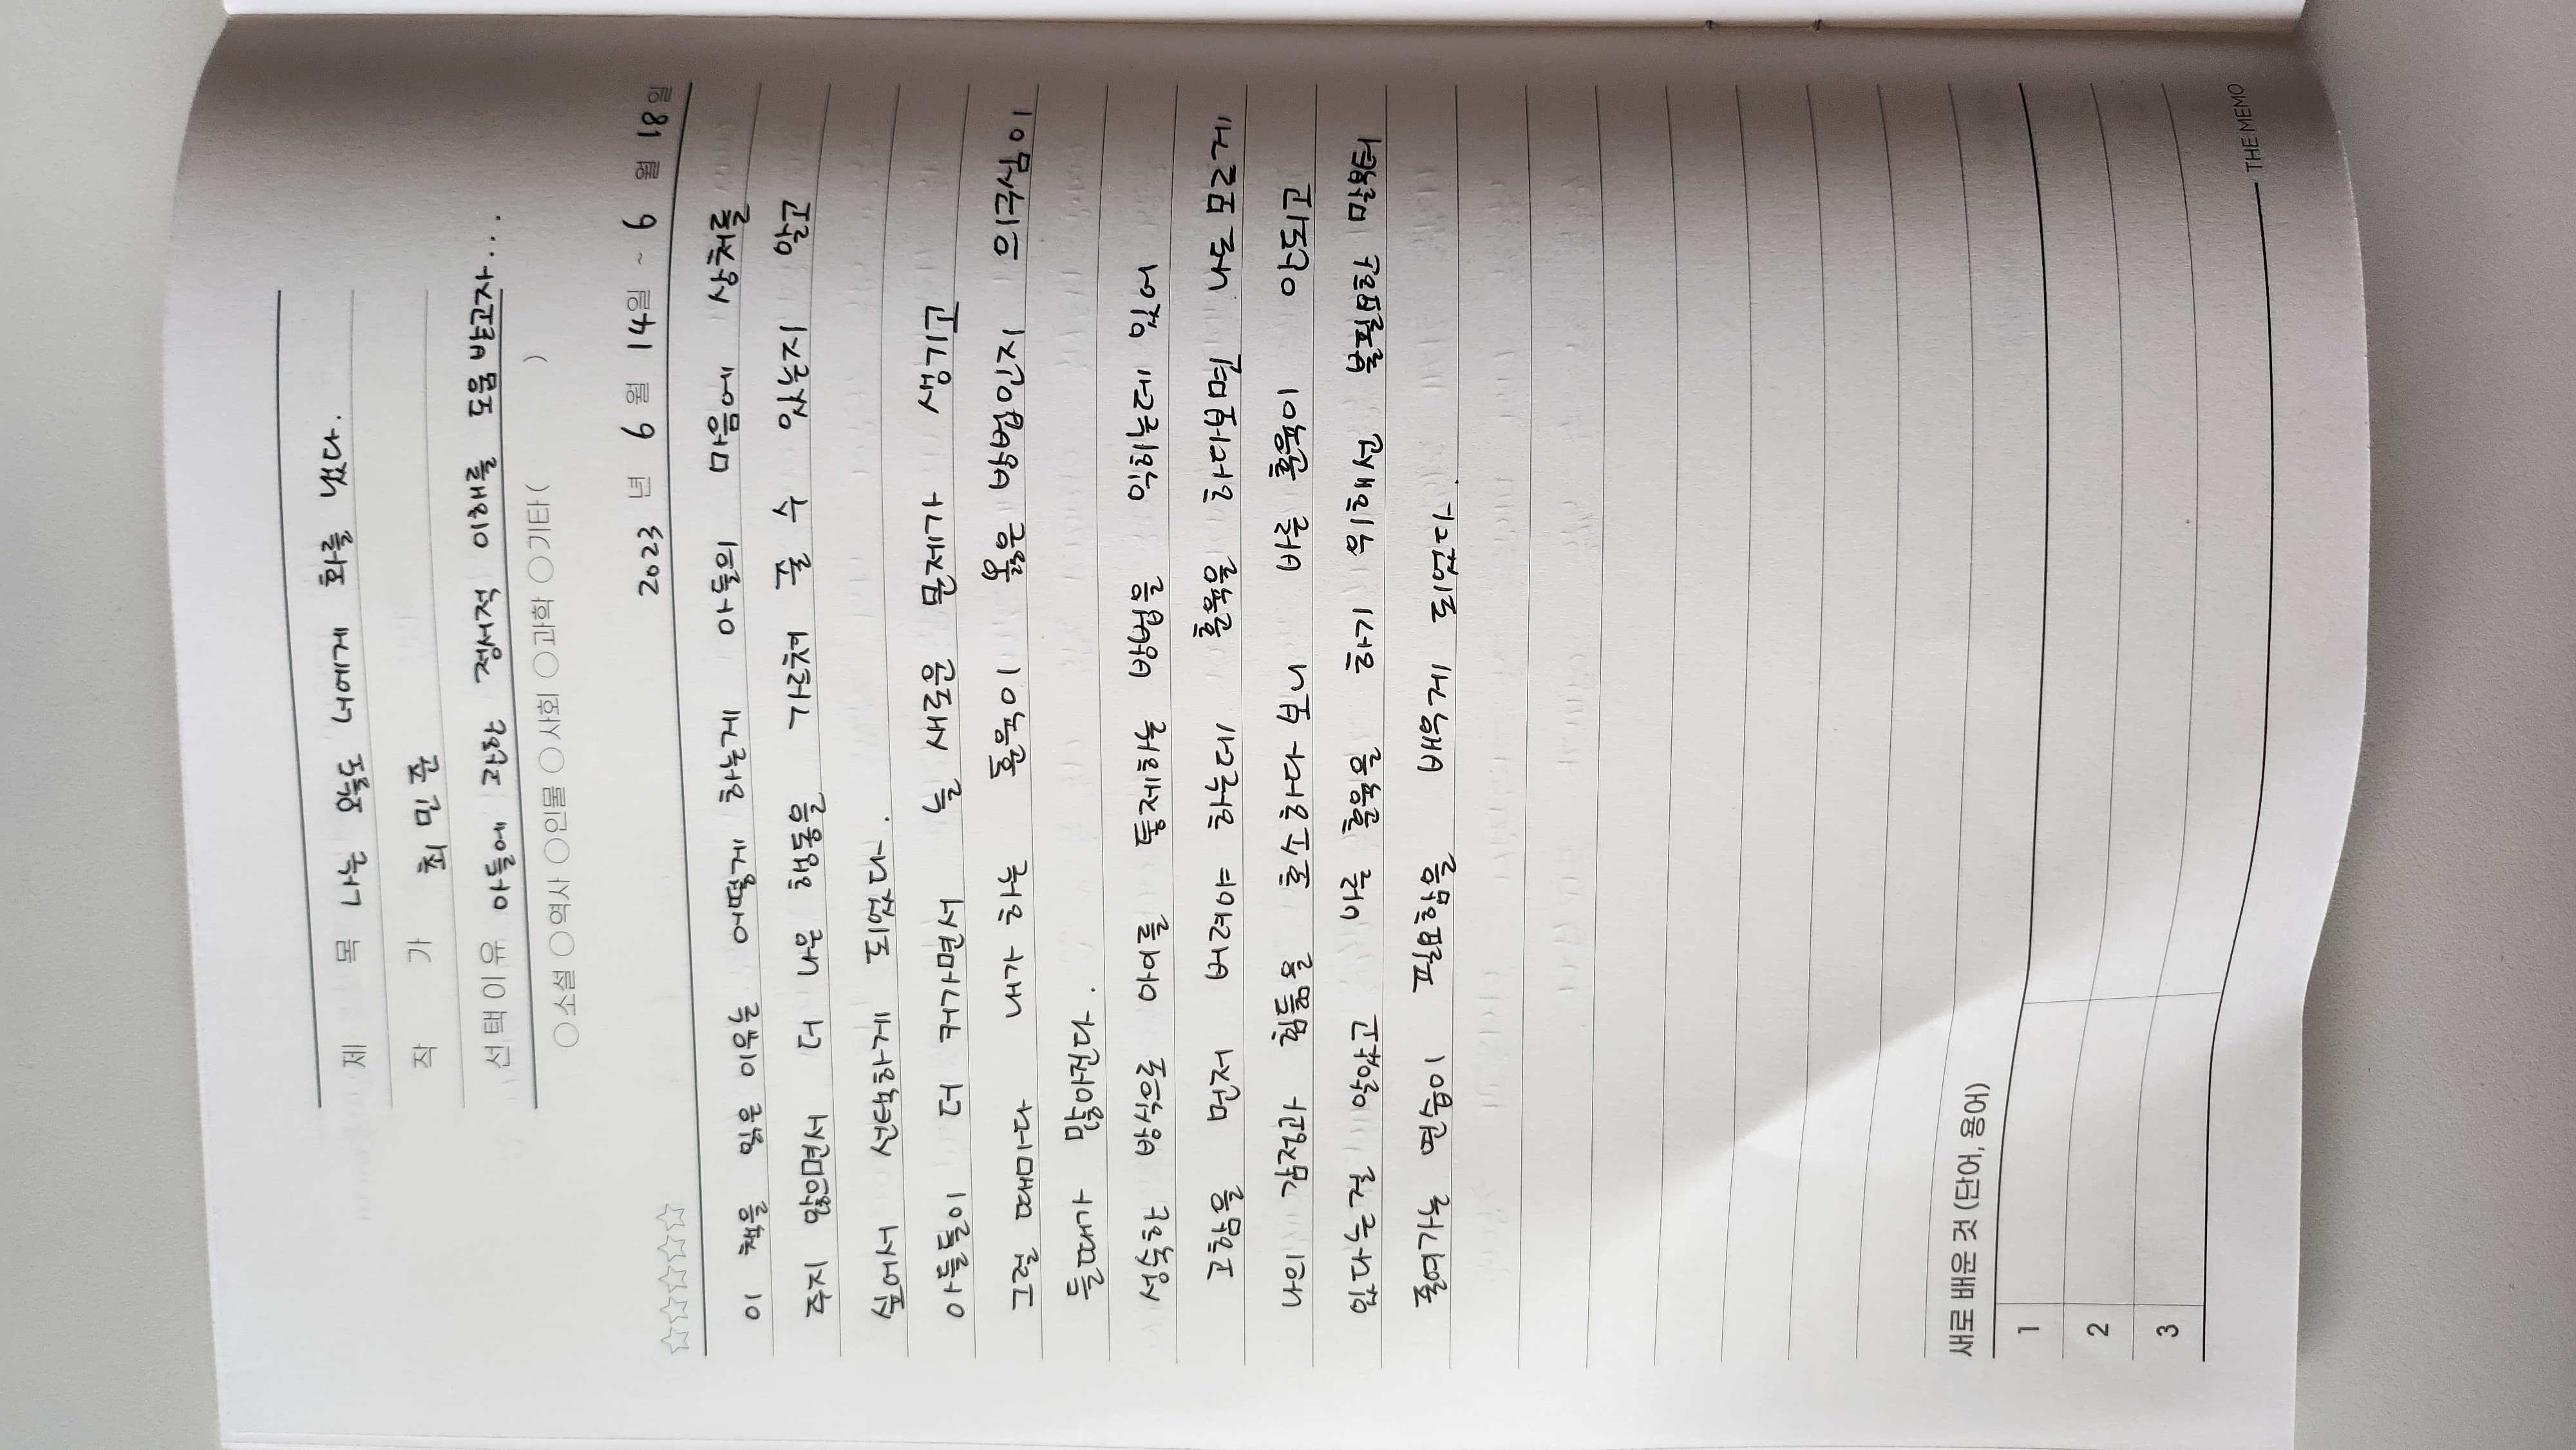 제 목 나는 오늘도 너에게 화를 냈다.
작 가 최민준
선택이유 아들에 관한 정서적 이해를 도움 받고자...
○소설 ○역사 ○인물 ○사회 ○과학 ○기타 ( )
2023 년 6 월 14일 ~ 6 월 18일
☆☆☆☆☆
이 책을 읽은 이유는 어떻게 하는게 아들의 마음에 상처를
주지 않으면서 더 나은 행동을 가르쳐 줄 수 있는지 알고
싶어서 선택하게 되었다.
아들들이 더 커가면서 늘 새로운 문제가 생기고
그럴 때마다 내가 하는 훈육이 옳은 방법인지 의구심이
들때가 많아진다.
성숙한 방식으로 아이를 통제하는 방법을 익히는데 있어
고함을 먼저 버려야 하는데 훈육을 하다보면 나도 모르게
나의 감정과 힘듦을 호소하다 보니 바른 훈육이 안되고
있다는걸 알았고 바른 훈육을 하기 위해선 불필요한 말부터
줄여가는 연습이 필요함을 배우게 되었다.
새로 배운 것 (단어, 용어)
1
2
3
THE MEMO